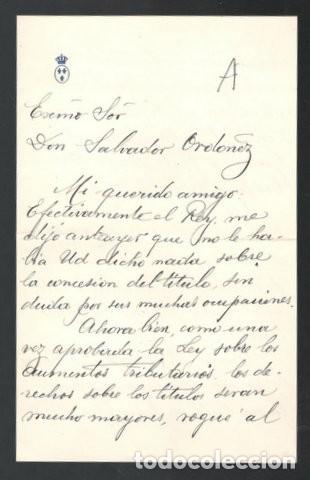 A
Exmo Sór
Don Salvador Ordoñez
Mi querido amigo:
Efectivamente el Rey me
dijó anteayer que no le ha-
bía Ud dicho nada sobre
la concesion del título, sin
duda por sus muchas ocupaciones.
Ahora bien, como una
vez aprobada la Ley sobre los
aumentos tributarios los de-
rechos sobre los títulos seran
mucho mayores, rogué al
todocoleccion.net